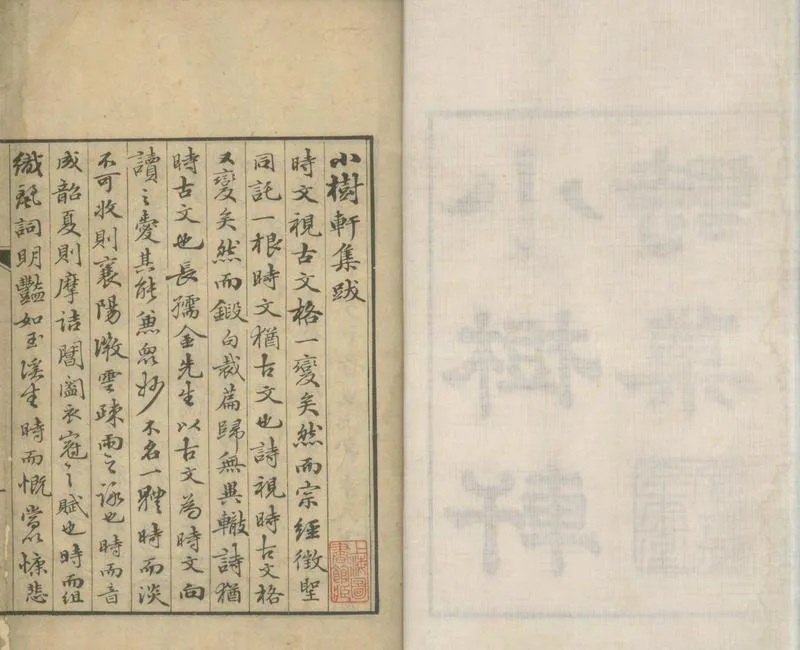 小樹軒集跋
時文視古文格一變矣然而宗經徵聖
同託一根時文猶古文也詩視時古文格
又變矣然而鍛句裁篇歸無異轍詩猶
時古文也長孺金先生以古文為時文向
讀之愛其能兼眾妙不名一體時而淡
不可收則襄陽微雲疎雨之詠也時而音
成韶夏則摩詰閶闔衣冠之賦也時而組
織詞明豔如玉溪生時而慨當以慷悲
上海圖
書館藏